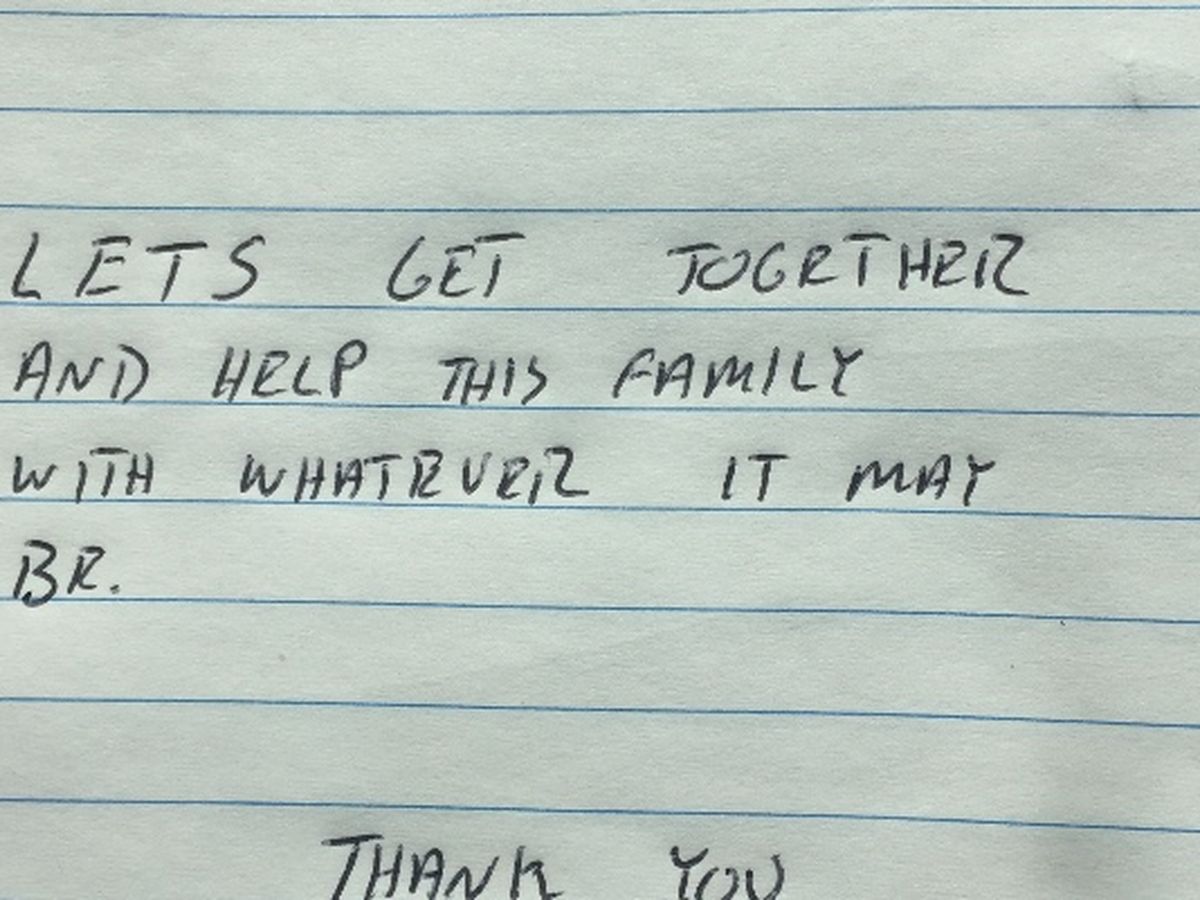 LETS GET TOGETHER
AND HELP THIS FAMILY
WITH WHATEVER IT MAY
BE.
THANK YOU